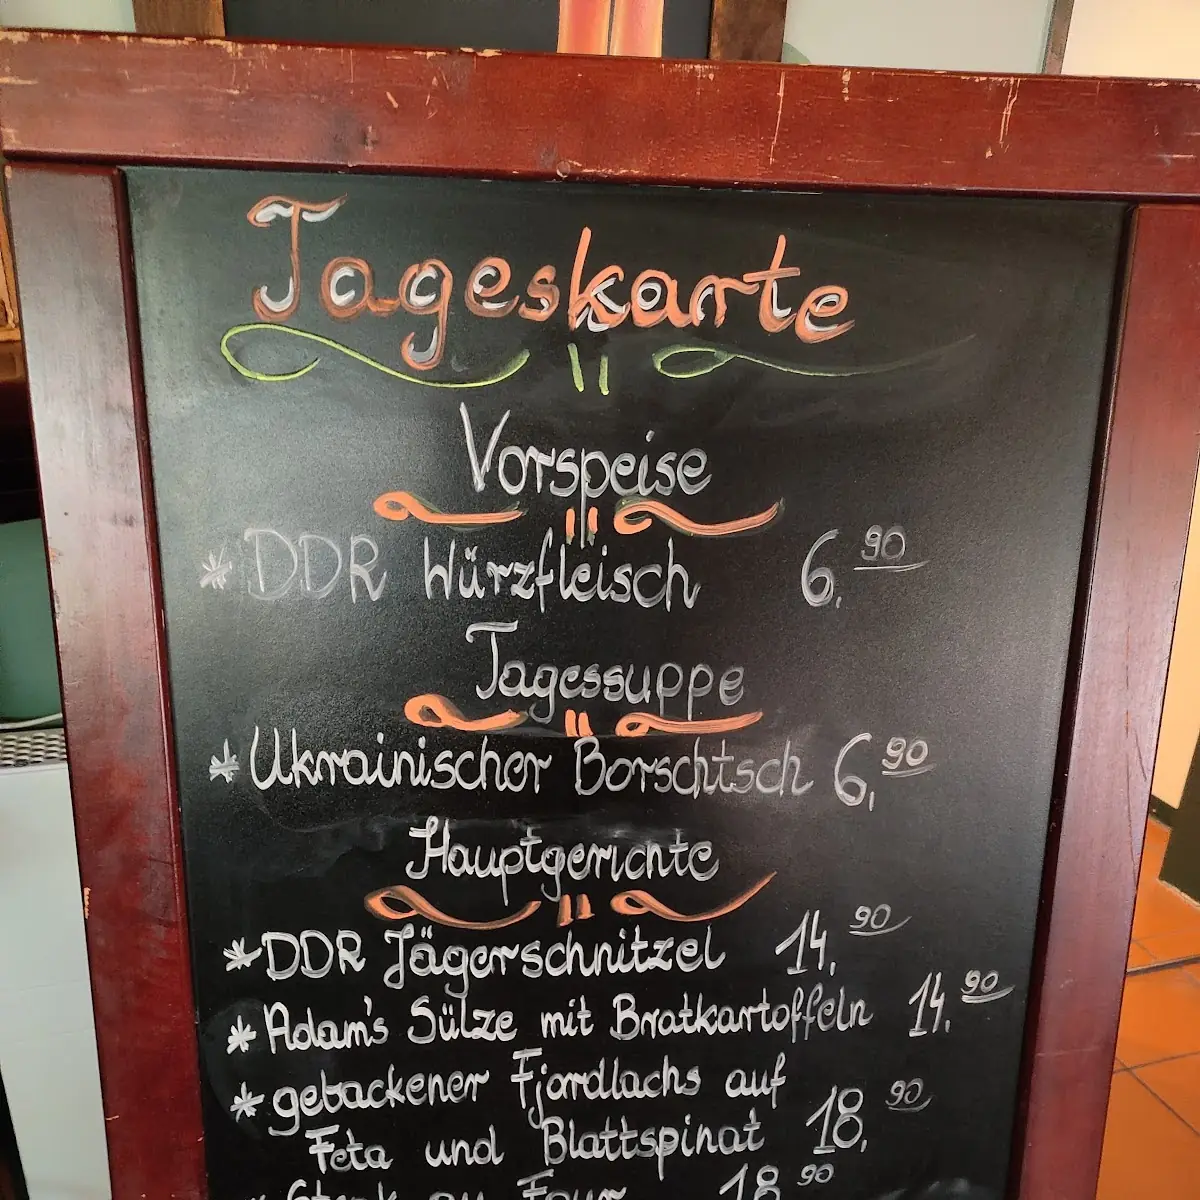 Tageskarte
Vorspeise
* DDR Würzfleisch 6,90
Tagessuppe
* Ukrainischer Borschtsch 6,90
Hauptgerichte
* DDR Jägerschnitzel 14,90
* Adam's Sülze mit Bratkartoffeln 14,90
* gebackener Fjordlachs auf
Feta und Blattspinat 18,90
18 90